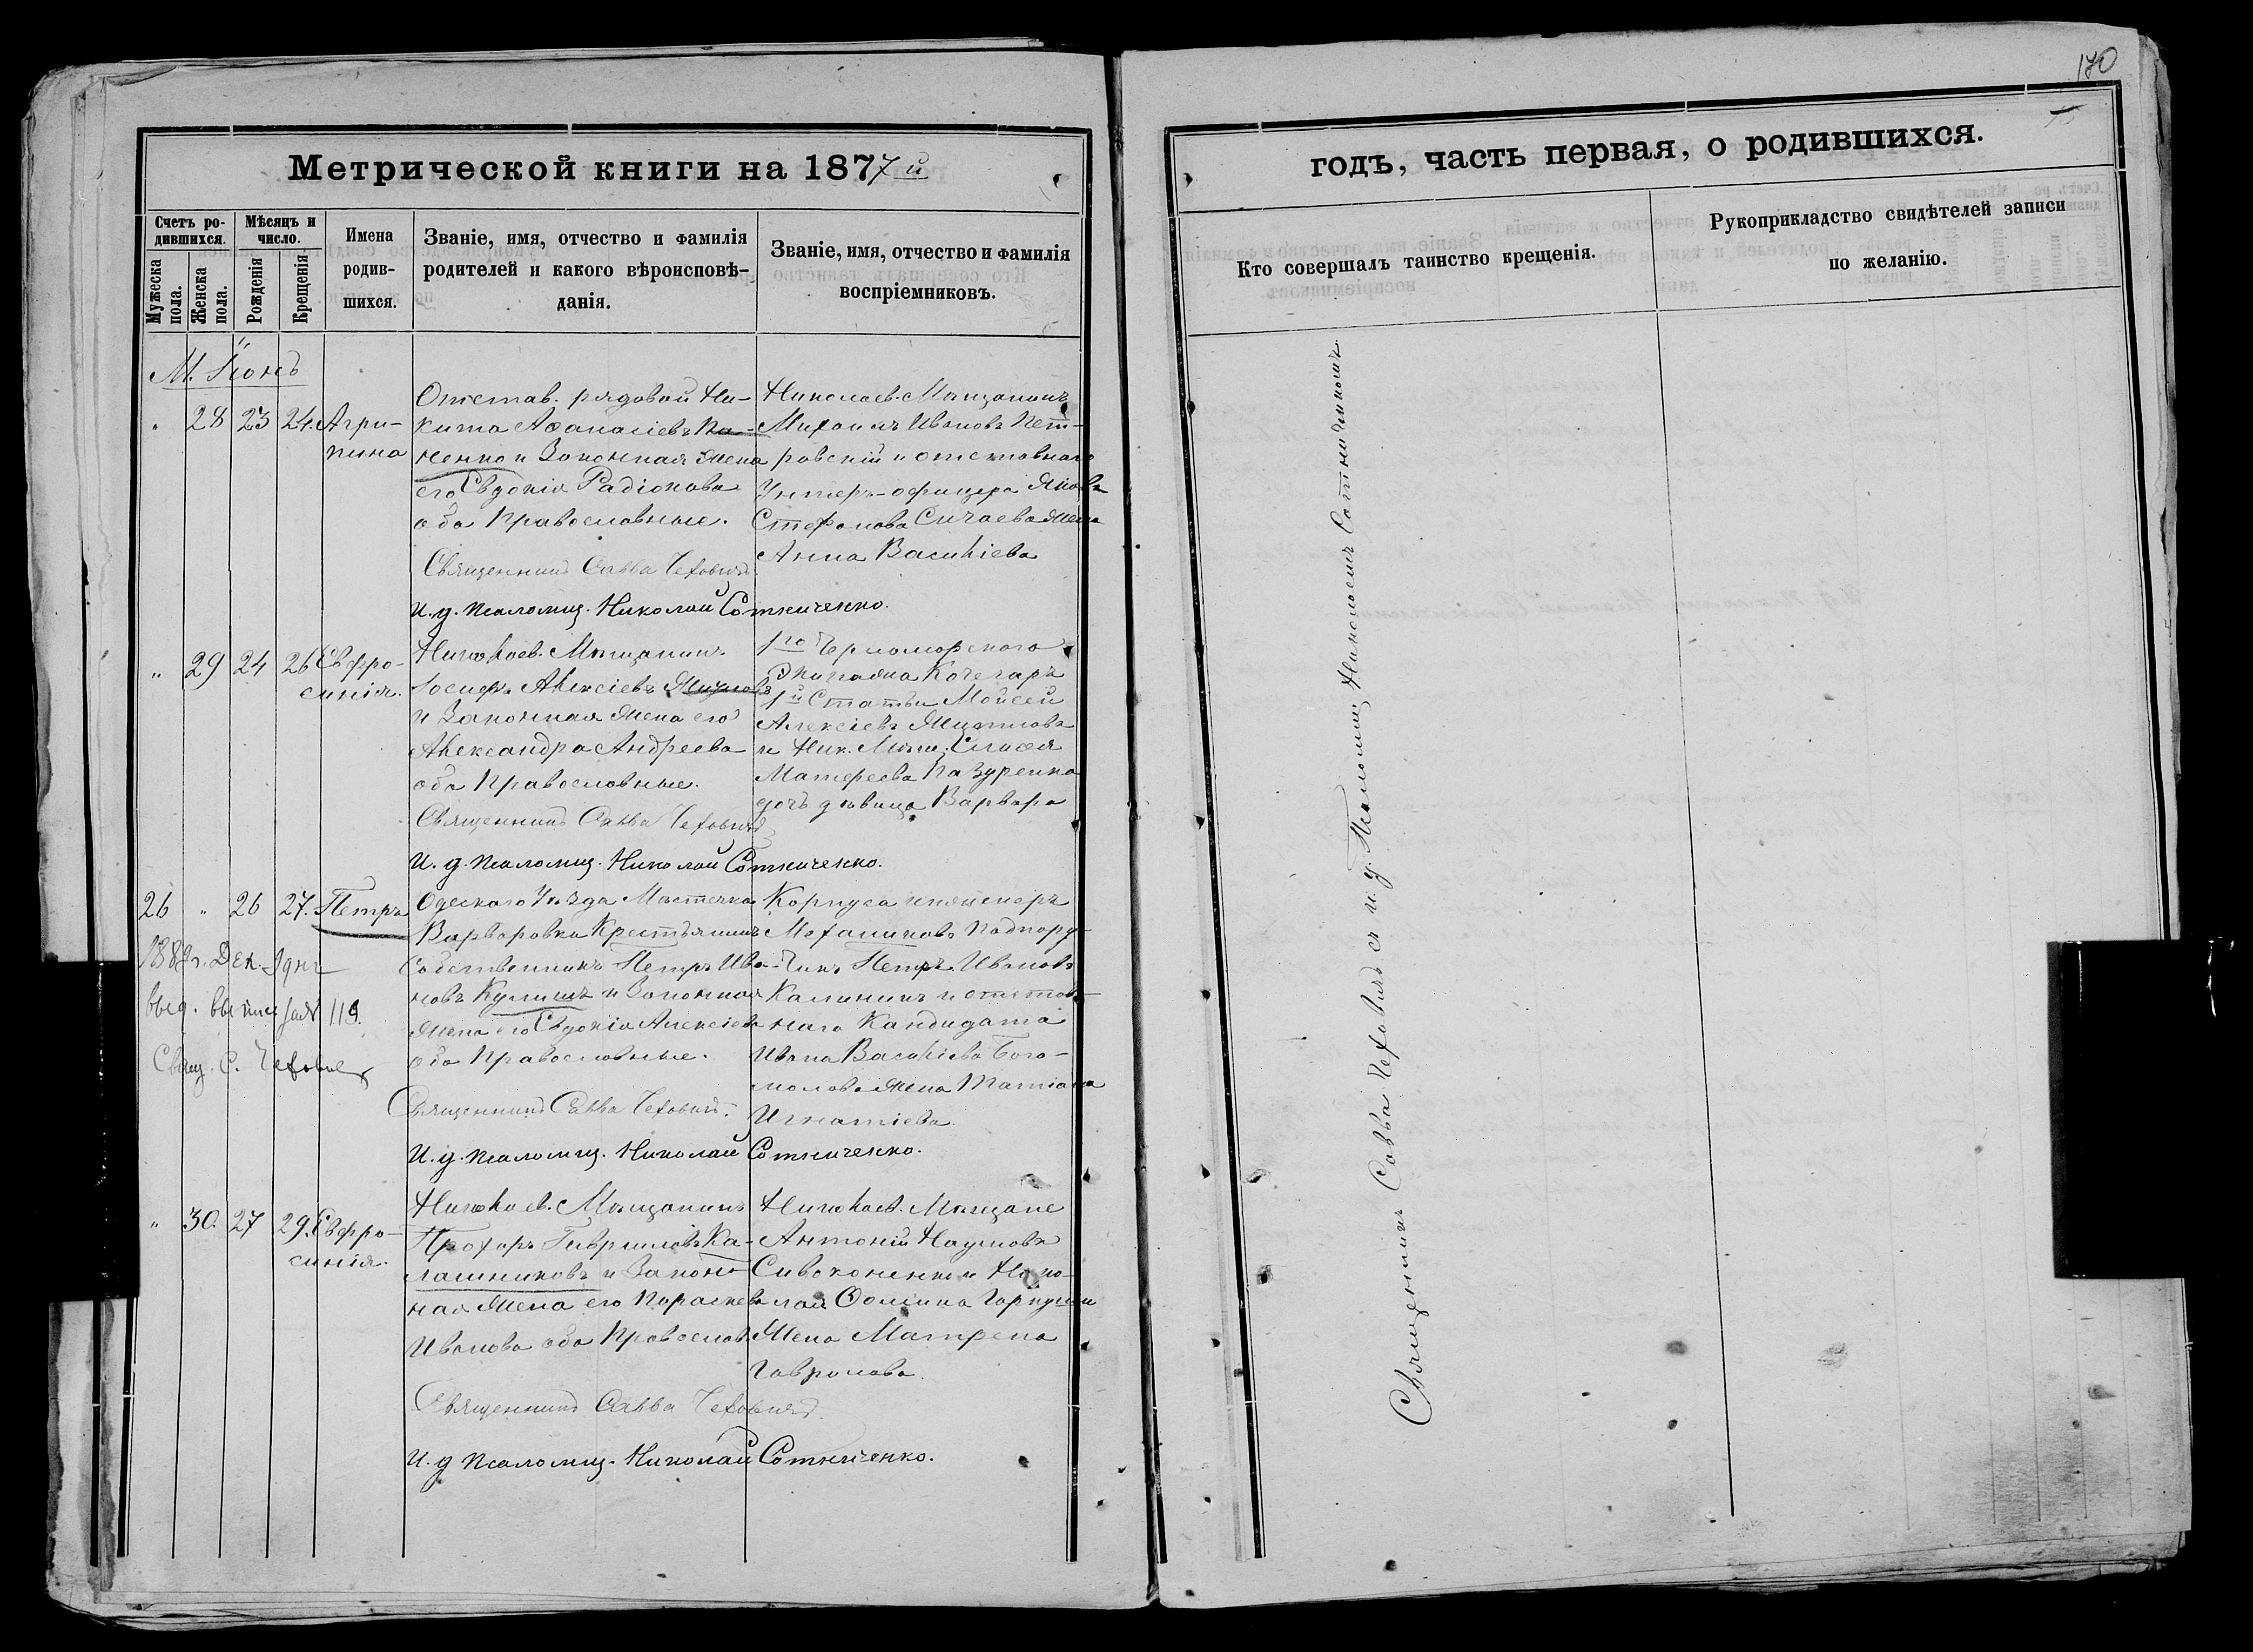 170
Метрической книги на 1877й
годъ, часть первая, о родившихся.
Счетъ ро-
дившихся.
Мѣсяцъ и
число.
Имена
родив-
шихся.
Званіе, имя, отчество и фамилія
родителей и какого вѣроисповѣ-
данія.
Званіе, имя, отчество и фамилія
воспріемниковъ.
Мужеска
пола.
Женска
пола.
Рожденія
Крещенія
Кто совершалъ таинство крещенія.
Рукоприкладство свидѣтелей записи
по желанію.
М. Іюнь
" 28 23 24. Агри-
пина
Отстав. рядовой Ни-
кита Аѳанасіевъ Па-
ненко и Законная жена
его Євдокія Радіонова
оба Православные.
Священникъ Савва Чеховичъ
И. д. псаломщ. Николай Сотниченко.
Николаев. Мѣщанинъ
Михаилъ Ивановъ Пет-
ровскій и отставнаго
Унтеръ-офицера Якова
Стефанова Сичаева жена
Анна Василіева
" 29 24 26 Євфро-
синія.
Николаев. Мѣщанинъ
Іосифъ Алексіевъ
и Законная жена его
Александра Андреева
оба Православные.
Священникъ Савва Чеховичъ
И. д. псаломщ. Николай Сотниченко.
1го Черноморского
Экипажа Кочегаръ
1й Статьи Мойсей
Алексіевъ
и Ник. Мѣщ.
Матфеева Назуренка
дочь дѣвица Варвара
26 " 26 27. Петръ
188 г. Дек. дня
выд. выпись за № 119.
Свящ. С. Чехович
Одескаго Уѣзда Мѣстечка
Варваровка Крестьянинъ
Собственникъ Петръ Ива-
новъ Кулишъ и Законная
жена его Євдокія Алексіева
оба Православные.
Священникъ Савва Чеховичъ.
И. д. псаломщ. Николай Сотниченко.
Корпуса инженеръ
Механиковъ Подпору-
чикъ Петръ Ивановъ
Калининъ и отстав-
наго Кандидата
Ивана Василіева Бого-
молова жена Татіана
Игнатіева.
" 30. 27 29. Євфро-
синія.
Николаев. Мѣщанинъ
Прохоръ Гавриловъ Ка-
лашниковъ и Закон-
ная жена его Параскева
Иванова оба Православ.
Священникъ Савва Чеховичъ.
И. д псаломщ. Николай Сотниченко.
Николаев. Мѣщане
Антоній Наумовъ
Сивоконенко и Нико-
лая Ѳомина
жена Матрена
Гаврилова.
Священникъ Савва Чеховичъ съ и. д. Псаломщ. Николаемъ Сотниченкомъ.